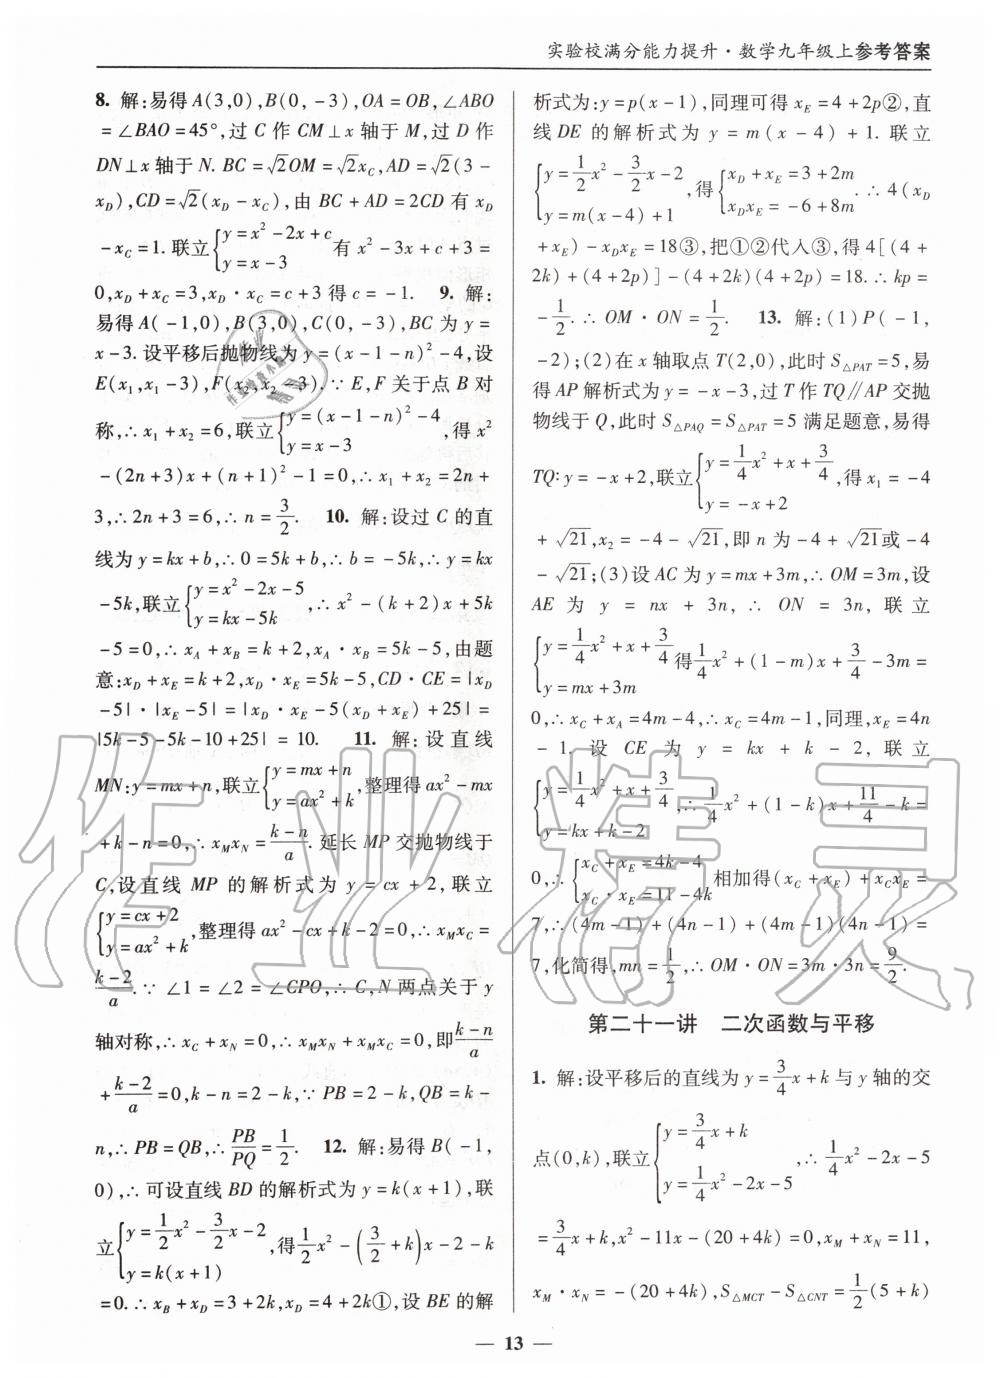 实验校满分能力提升·数学九年级上参考答案
8. 解:易得A(3,0),B(0,-3),OA=OB,∠ABO
=∠BAO=45°,过 C 作 CM⊥x 轴于 M,过 D 作
DN⊥x 轴于 N. BC=√2OM=√2x_C,AD=√2(3-
x_D),CD=√2(x_D-x_C),由 BC+AD=2CD 有 x_D
-x_C=1. 联立{y=x²-2x+c y=x-3 有 x²-3x+c+3=
0,x_D+x_C=3,x_D·x_C=c+3 得 c=-1. 9. 解:
易得A(-1,0),B(3,0),C(0,-3),BC 为 y=
x-3. 设平移后抛物线为 y=(x-1-n)²-4,设
E(x₁,x₁-3),F(x₂,x₂-3).∵E,F 关于点 B 对
称,∴x₁+x₂=6,联立{y=(x-1-n)²-4 y=x-3,得 x²
-(2n+3)x+(n+1)²-1=0,∴x₁+x₂=2n+
3,∴2n+3=6,∴n=3/2. 10. 解:设过 C 的直
线为 y=kx+b,∴0=5k+b,∴b=-5k,∴y=kx
-5k,联立{y=x²-2x-5 y=kx-5k,∴x²-(k+2)x+5k
-5=0,∴x_A+x_B=k+2,x_A·x_B=5k-5,由题
意:x_D+x_E=k+2,x_D·x_E=5k-5,CD·CE=|x_D
-5|·|x_E-5|=|x_D·x_E-5(x_D+x_E)+25|=
|5k-5-5k-10+25|=10. 11. 解:设直线
MN:y=mx+n,联立{y=mx+n y=ax²+k,整理得ax²-mx
+k-n=0,∴x_Mx_N=(k-n)/a. 延长 MP 交抛物线于
C,设直线 MP 的解析式为 y=cx+2,联立
{y=cx+2 y=ax²+k,整理得ax²-cx+k-2=0,∴x_Mx_C=
(k-2)/a.∵∠1=∠2=∠CPO,∴C,N 两点关于 y
轴对称,∴x_C+x_N=0,∴x_Mx_N+x_Mx_C=0,即(k-n)/a
+(k-2)/a=0,k-n=2-k,∵PB=2-k,QB=k-
n,∴PB=QB,∴PB/PQ=1/2. 12. 解:易得B(-1,
0),∴可设直线 BD 的解析式为 y=k(x+1),联
立{y=1/2x²-3/2x-2 y=k(x+1),得1/2x²-(3/2+k)x-2-k
=0.∴x_B+x_D=3+2k,x_D=4+2k①,设 BE 的解
析式为:y=p(x-1),同理可得 x_E=4+2p②,直
线 DE 的解析式为 y=m(x-4)+1. 联立
{y=1/2x²-3/2x-2 y=m(x-4)+1,得{x_D+x_E=3+2m x_Dx_E=-6+8m.∴4(x_D
+x_E)-x_Dx_E=18③,把①②代入③,得4[(4+
2k)+(4+2p)]-(4+2k)(4+2p)=18.∴kp=
-1/2.∴OM·ON=1/2. 13. 解:(1)P(-1,
-2);(2)在 x 轴取点 T(2,0),此时 S△PAT=5,易
得 AP 解析式为 y=-x-3,过 T 作 TQ∥AP 交抛
物线于 Q,此时 S△PAQ=S△PAT=5 满足题意,易得
TQ:y=-x+2,联立{y=1/4x²+x+3/4 y=-x+2,得 x₁=-4
+√21,x₂=-4-√21,即 n 为 -4+√21或-4
-√21;(3)设 AC 为 y=mx+3m,∴OM=3m,设
AE 为 y=nx+3n,∴ON=3n,联立
{y=1/4x²+x+3/4 y=mx+3m 得1/4x²+(1-m)x+3/4-3m=
0,∴x_C+x_A=4m-4,∴x_C=4m-1,同理,x_E=4n
-1. 设 CE 为 y=kx+k-2,联立
{y=1/4x²+x+3/4 y=kx+k-2,∴1/4x²+(1-k)x+11/4-k=
0,∴{x_C+x_E=4k-4 x_C·x_E=11-4k 相加得(x_C+x_E)+x_Cx_E=
7,∴(4m-1)+(4n-1)+(4m-1)(4n-1)=
7,化简得,mn=1/2,∴OM·ON=3m·3n=9/2.
第二十一讲 二次函数与平移
1. 解:设平移后的直线为 y=3/4x+k 与 y 轴的交
点(0,k),联立{y=3/4x+k y=1/4x²-2x-5,∴1/4x²-2x-5
=3/4x+k,x²-11x-(20+4k)=0,x_M+x_N=11,
x_M·x_N=-(20+4k),S△MCT-S△CNT=1/2(5+k)
— 13 —
作业精灵